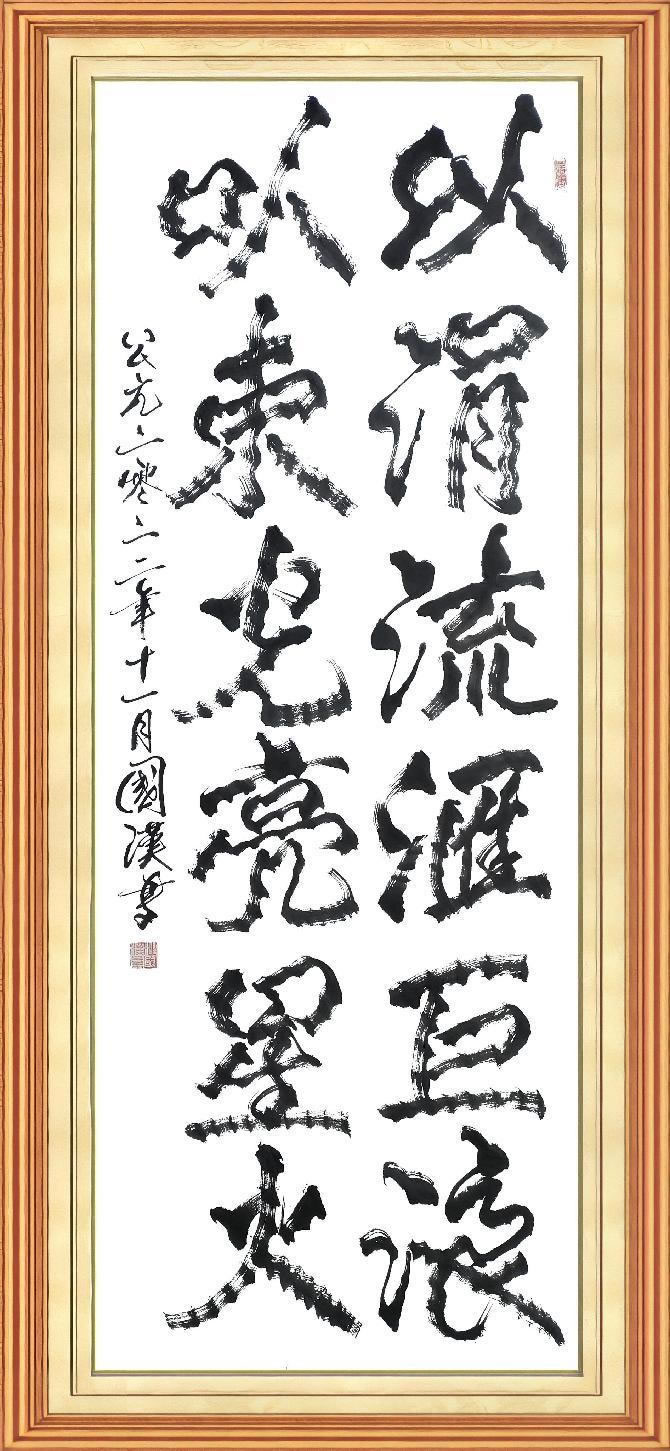 以涓流滙巨浪
以束光亮星火
公元二零二二年十一月國漢書